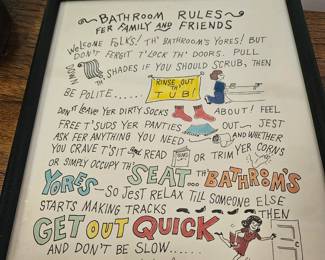 BATHROOM RULES
FER FAMILY AND FRIENDS
WELCOME FOLKS! TH' BATHROOM'S YORES! BUT
DON'T FERGIT T'LOCK TH' DOORS. PULL
DOWN TH' SHADES IF YOU SHOULD SCRUB, THEN
BE POLITE...... RINSE OUT TH' TUB!
DON'T LEAVE YER DIRTY SOCKS ABOUT! FEEL
FREE T'SUDS YER PANTIES OUT — JEST
ASK FER ANYTHING YOU NEED AND WHETHER
YOU CRAVE T'SIT READ OR TRIM YER CORNS
OR SIMPLY OCCUPY TH' SEAT... TH' BATHROOM'S
YORES — SO JEST RELAX TILL SOMEONE ELSE
STARTS MAKING TRACKS THEN
GET OUT QUICK
AND DON'T BE SLOW......